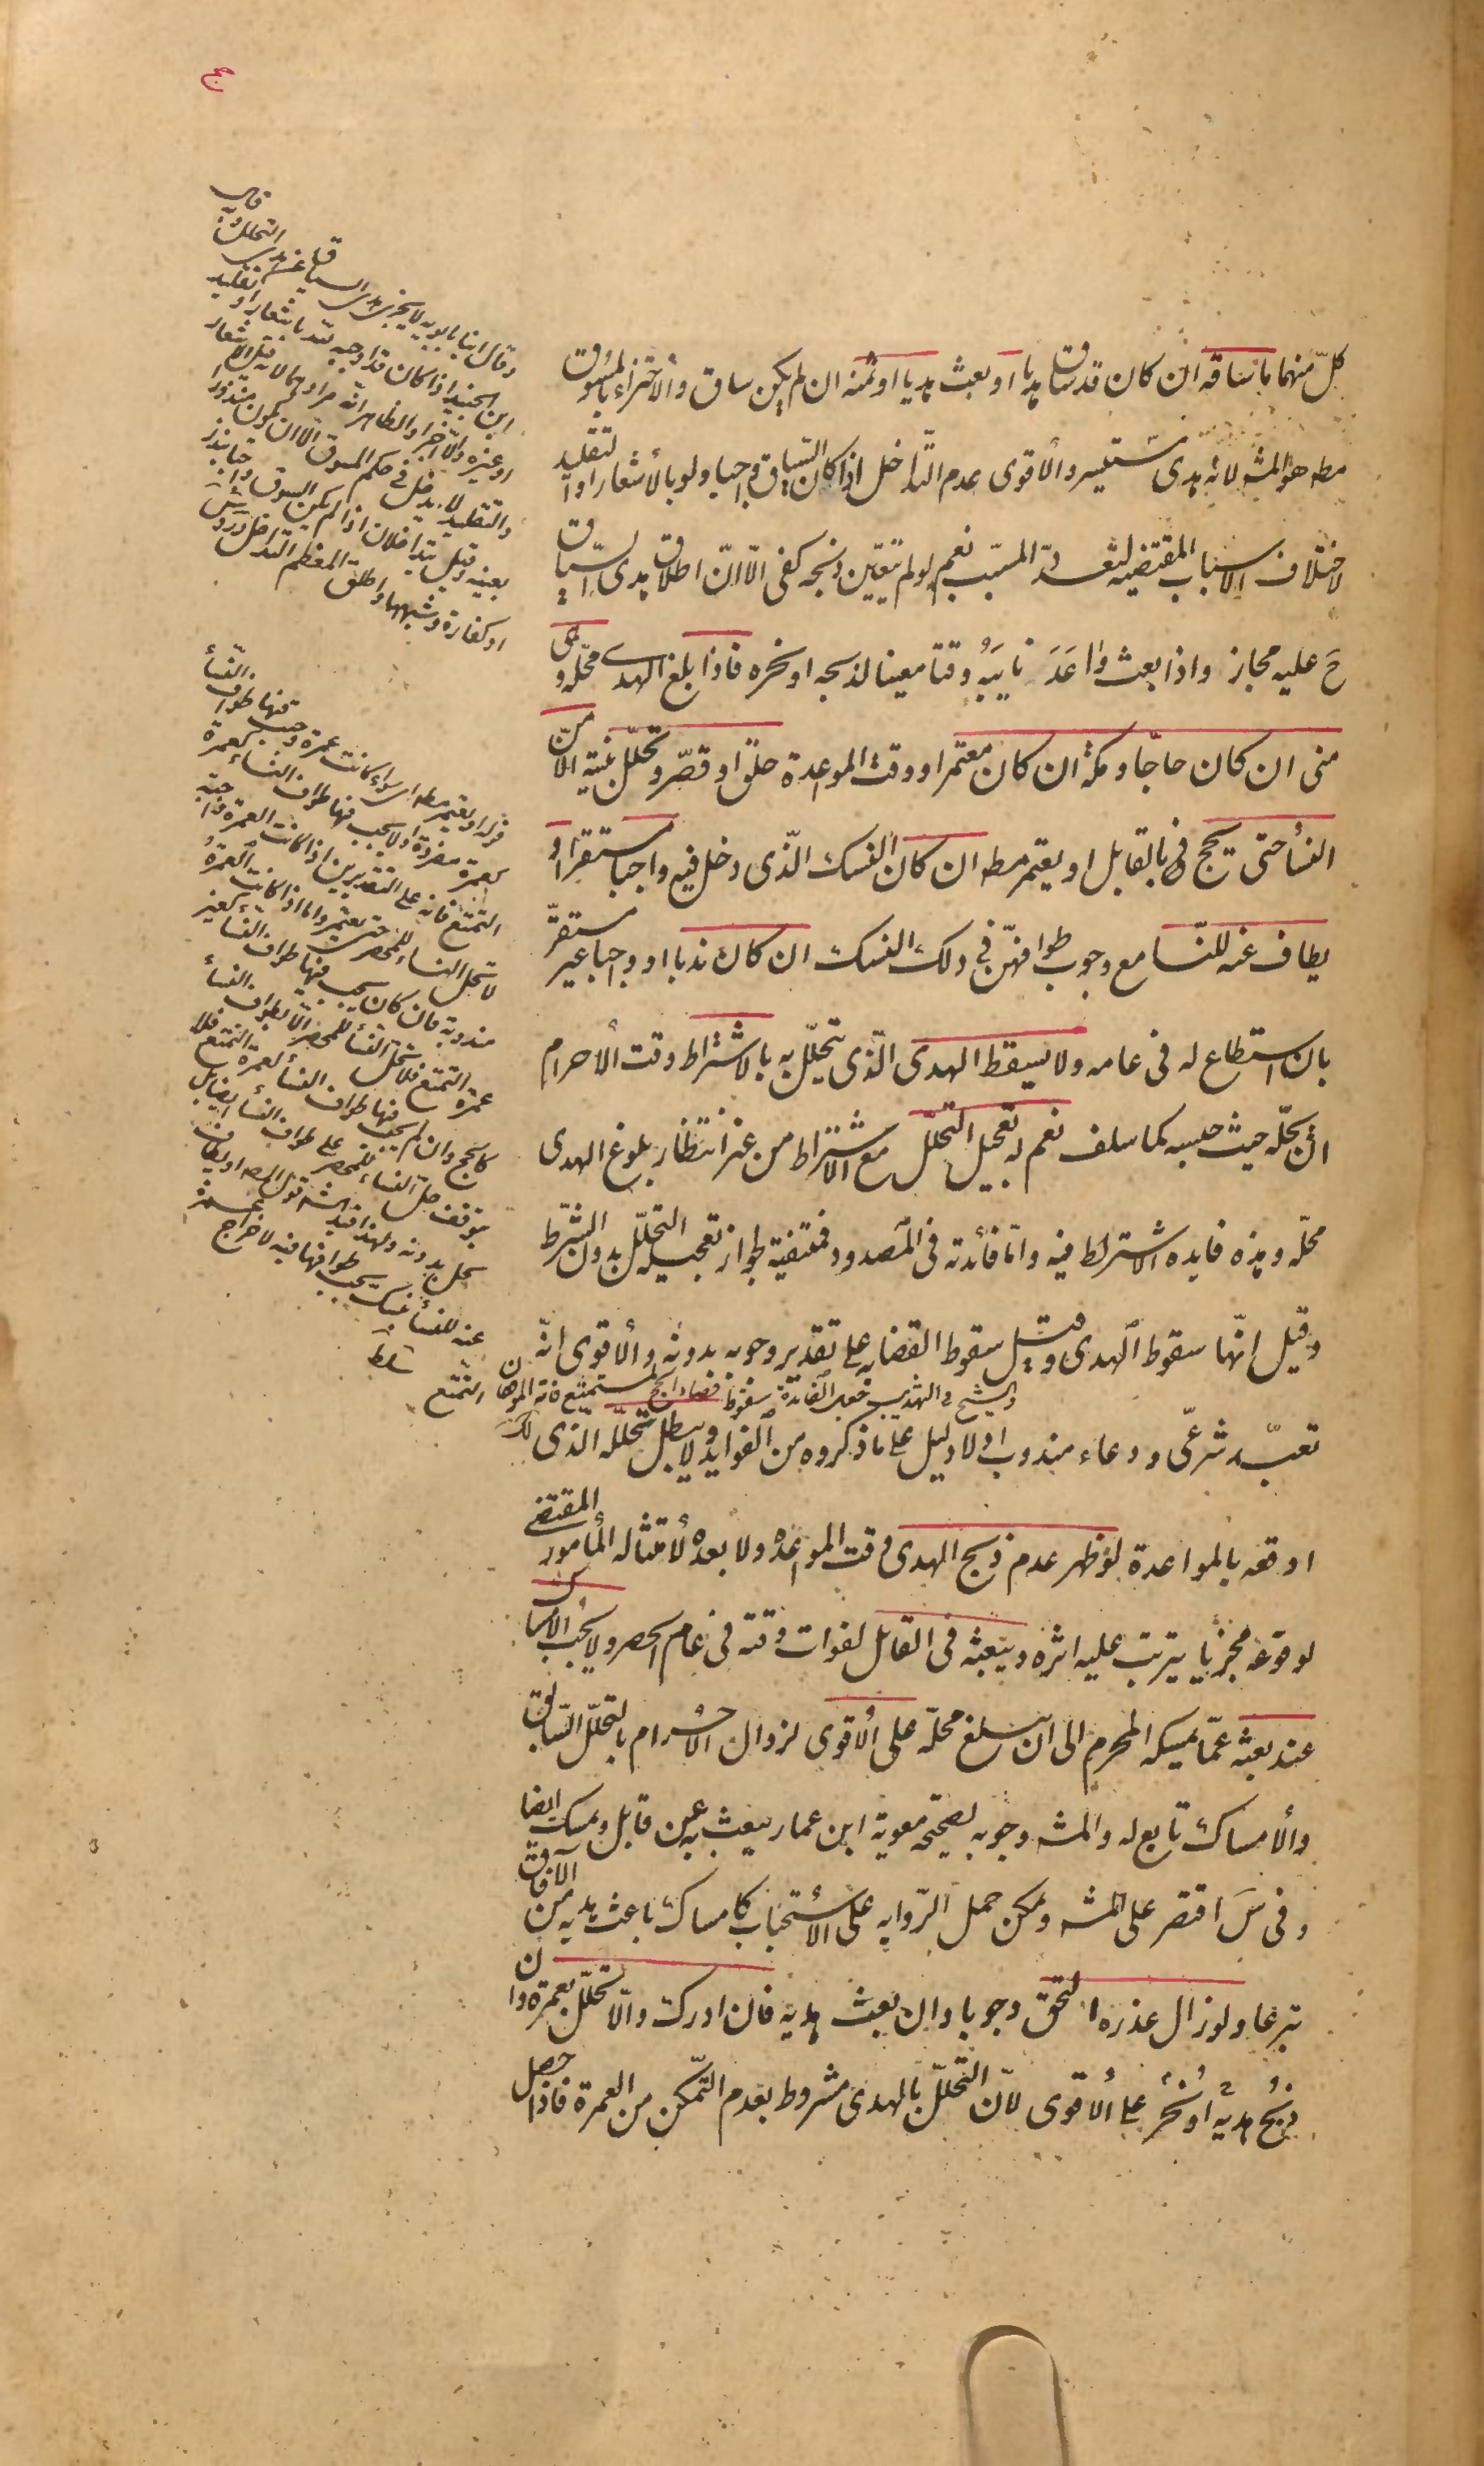 حج
كلّ منهما ما ساقه ان كان قد ساق هديا او بعث هديا او ثمنه ان لم يكن ساق والاجتزاء بالمسوق
مطه هو المشه لانه هدى مستيسر والأقوى عدم التّداخل اذا كان السّياق واجبا ولو بالأشعار او التقليد
لاختلاف الاسباب المقتضيه لتعدّد المسبّب نعم لو لم يتعيّن ذبحه كفى الّا انّ اطلاق هدى السّياق
حَ عليه مجاز واذا بعث واعَدَ نايبَهُ وقتا معينا لذبحه او نحره فاذا بلغ الهدى محلّه وهى
منى ان كان حاجّا ومكّة ان كان معتمرا ووقت المواعدة حلق او قصّر وتحلّل بنية الّا من
النسأ حتى يحج فى القابل او يعتمر مطه ان كان النسك الّذى دخل فيه واجبا مستقرا او
يطاف عنه للنّسا مع وجوب طوافهنّ فى ذلك النسك ان كان ندبا او واجبا غير مستقرّ
بان استطاع له فى عامه ولا يسقط الهدى الّذى يتحلّل به بالاشتراط وقت الأحرام
ان يحلّه حيث حبسه كما سلف نعم له تعجيل التحلّل مع الاشتراط من غير انتظار بلوغ الهدى
محلّه وهذه فايده الاشتراط فيه وامّا فائدته فى المصدود فمنتفية لجواز تعجيله التحلّل بدون الشّرط
وقيل انّها سقوط الهدى وقيل سقوط القضاء على تقدير وجوبه بدونه والأقوى انّه
والشيخ فى التهذيب جعل الفائدة سقوط قضاء الحج لمتمتع فاته الموقفان التمتع
تعبّد شرعّى ودعاء مندوب اذ لا دليل على ما ذكروه من الفوايد ولا يبطل تحلّله الّذى
اوقعه بالمواعدة لو ظهر عدم ذبح الهدى وقت المواعدة ولا بعده لأمتثاله المأمور المقتضى
لوقوعه مجزيا يترتب عليه اثره ويبعثه فى القابل لفوات وقته فى عام الحصر ولا يجب الأمساك
عند بعثه عمّا يمسكه المحرم الى ان يبلغ محلّه على الأقوى لزوال الاحرام بالتحلّل السّابق
والأمساك تابع له والمشه وجوبه لصحيحة معوية ابن عمار يبعث به من قابل ويمسك ايضا
وفى سَ اقتصر على المشه ويمكن حمل الرّوايه على الأستحباب كامساك باعث هديه من الآفاق
تبرعا ولو زال عذره التحق وجوبا وان بعث هديه فان ادرك والّا تحلّل بعمرة وان
ذبح هديه او نحر على الأقوى لانّ التحلّل بالهدى مشروط بعدم التّمكّن من العمرة فاذا حصل
وقال ابنا بابويه لا يجزى هدى السياق عن هدى التحلل وقال
ابن الجنيد اذا كان قد اوجبه لله باشعار او تقليد
او غيره والّا اجزأ والظاهر انّه مراد لانه قبل الاشعار
والتقليد لا يدخل فى حكم المسوق الّا ان يكون منذورا
بعينه وقيل يتداخلان اذا لم يكن السوق واجبا بنذر
او كفارة وشبهها واطلق المعظم التداخل
قوله او يعتمر مطه اى سواء كانت عمرة وجب فيها طواف النسأ
كعمرة مفردة او لا يجب فيها طواف النساء كعمرة
التمتع فانه على التقديرين اذا كانت العمرة واجبة
لا تحل النساء للمحصر حتى يعتمر واما اذا كانت العمرة
مندوبة فان كان يجب فيها طواف النسأ كغير
عمرة التمتع فلا تحل النسأ للمحصر الّا بطواف النسأ
كالحج وان لم يجب فيها طواف النسأ كعمرة التمتع فلا
يتوقف حل النساء للمحصر على طواف النسأ ايضا بل
يحل بدونه ولهذا قيد الشه قول المصه او يطاف
عنه للنسأ بنسك يجب طوافها فيه لاخراج